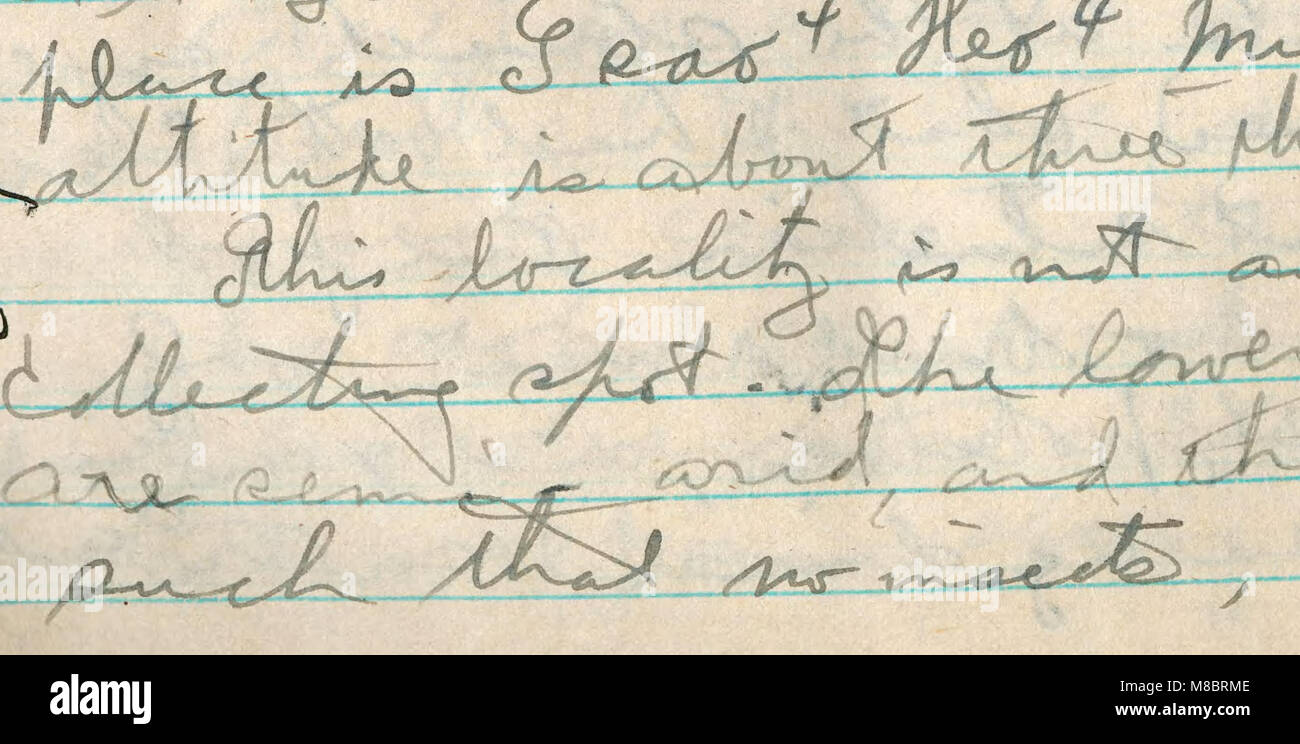 place is Tsao⁴ Heo⁴
altitude is about three
This locality is not
collecting spot. The lower
are semi-arid, and
such that no insects,
alamy
Image ID: M8BRME
www.alamy.com